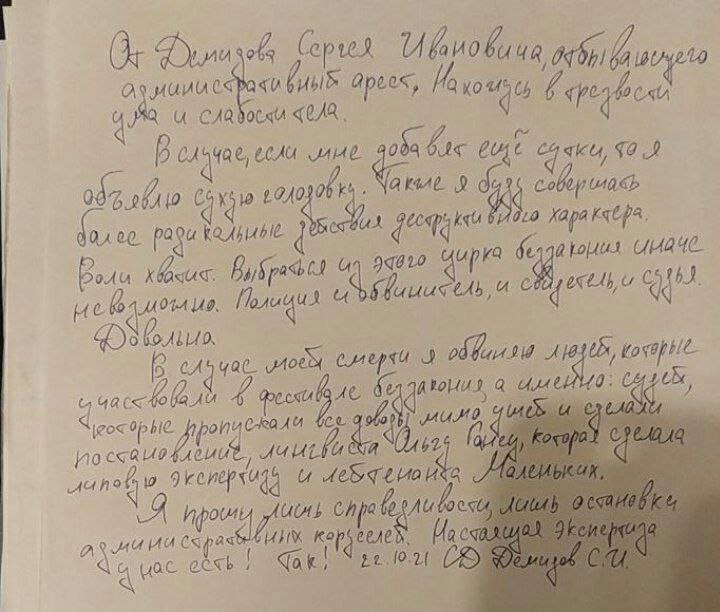 От Демидова Сергея Ивановича, отбывающего
административный арест. Нахожусь в трезвости
ума и слабости тела.
В случае, если мне добавят ещё сутки, то я
объявлю сухую голодовку. Также я буду совершать
более радикальные действия деструктивного характера.
Воли хватит. Выбраться из этого цирка беззакония иначе
невозможно. Полиция и обвинитель, и свидетель, и судья.
Довольна
В случае моей смерти я обвиняю людей, которые
участвовали в фестивале беззакония, а именно: судей,
которые пропускали все доводы мимо ушей и сделали
постановление, лингвиста Ольгу которая сделала
липовую экспертизу и лейтенанта Маленьких.
Я прошу лишь справедливости, лишь остановки
административных каруселей. Настоящая экспертиза
у нас есть! Так! 22.10.21 СД Демидов С.И.